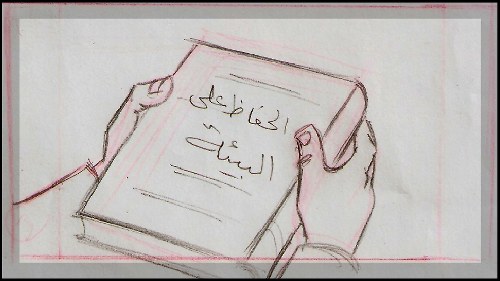 الحفاظ على
البيئة